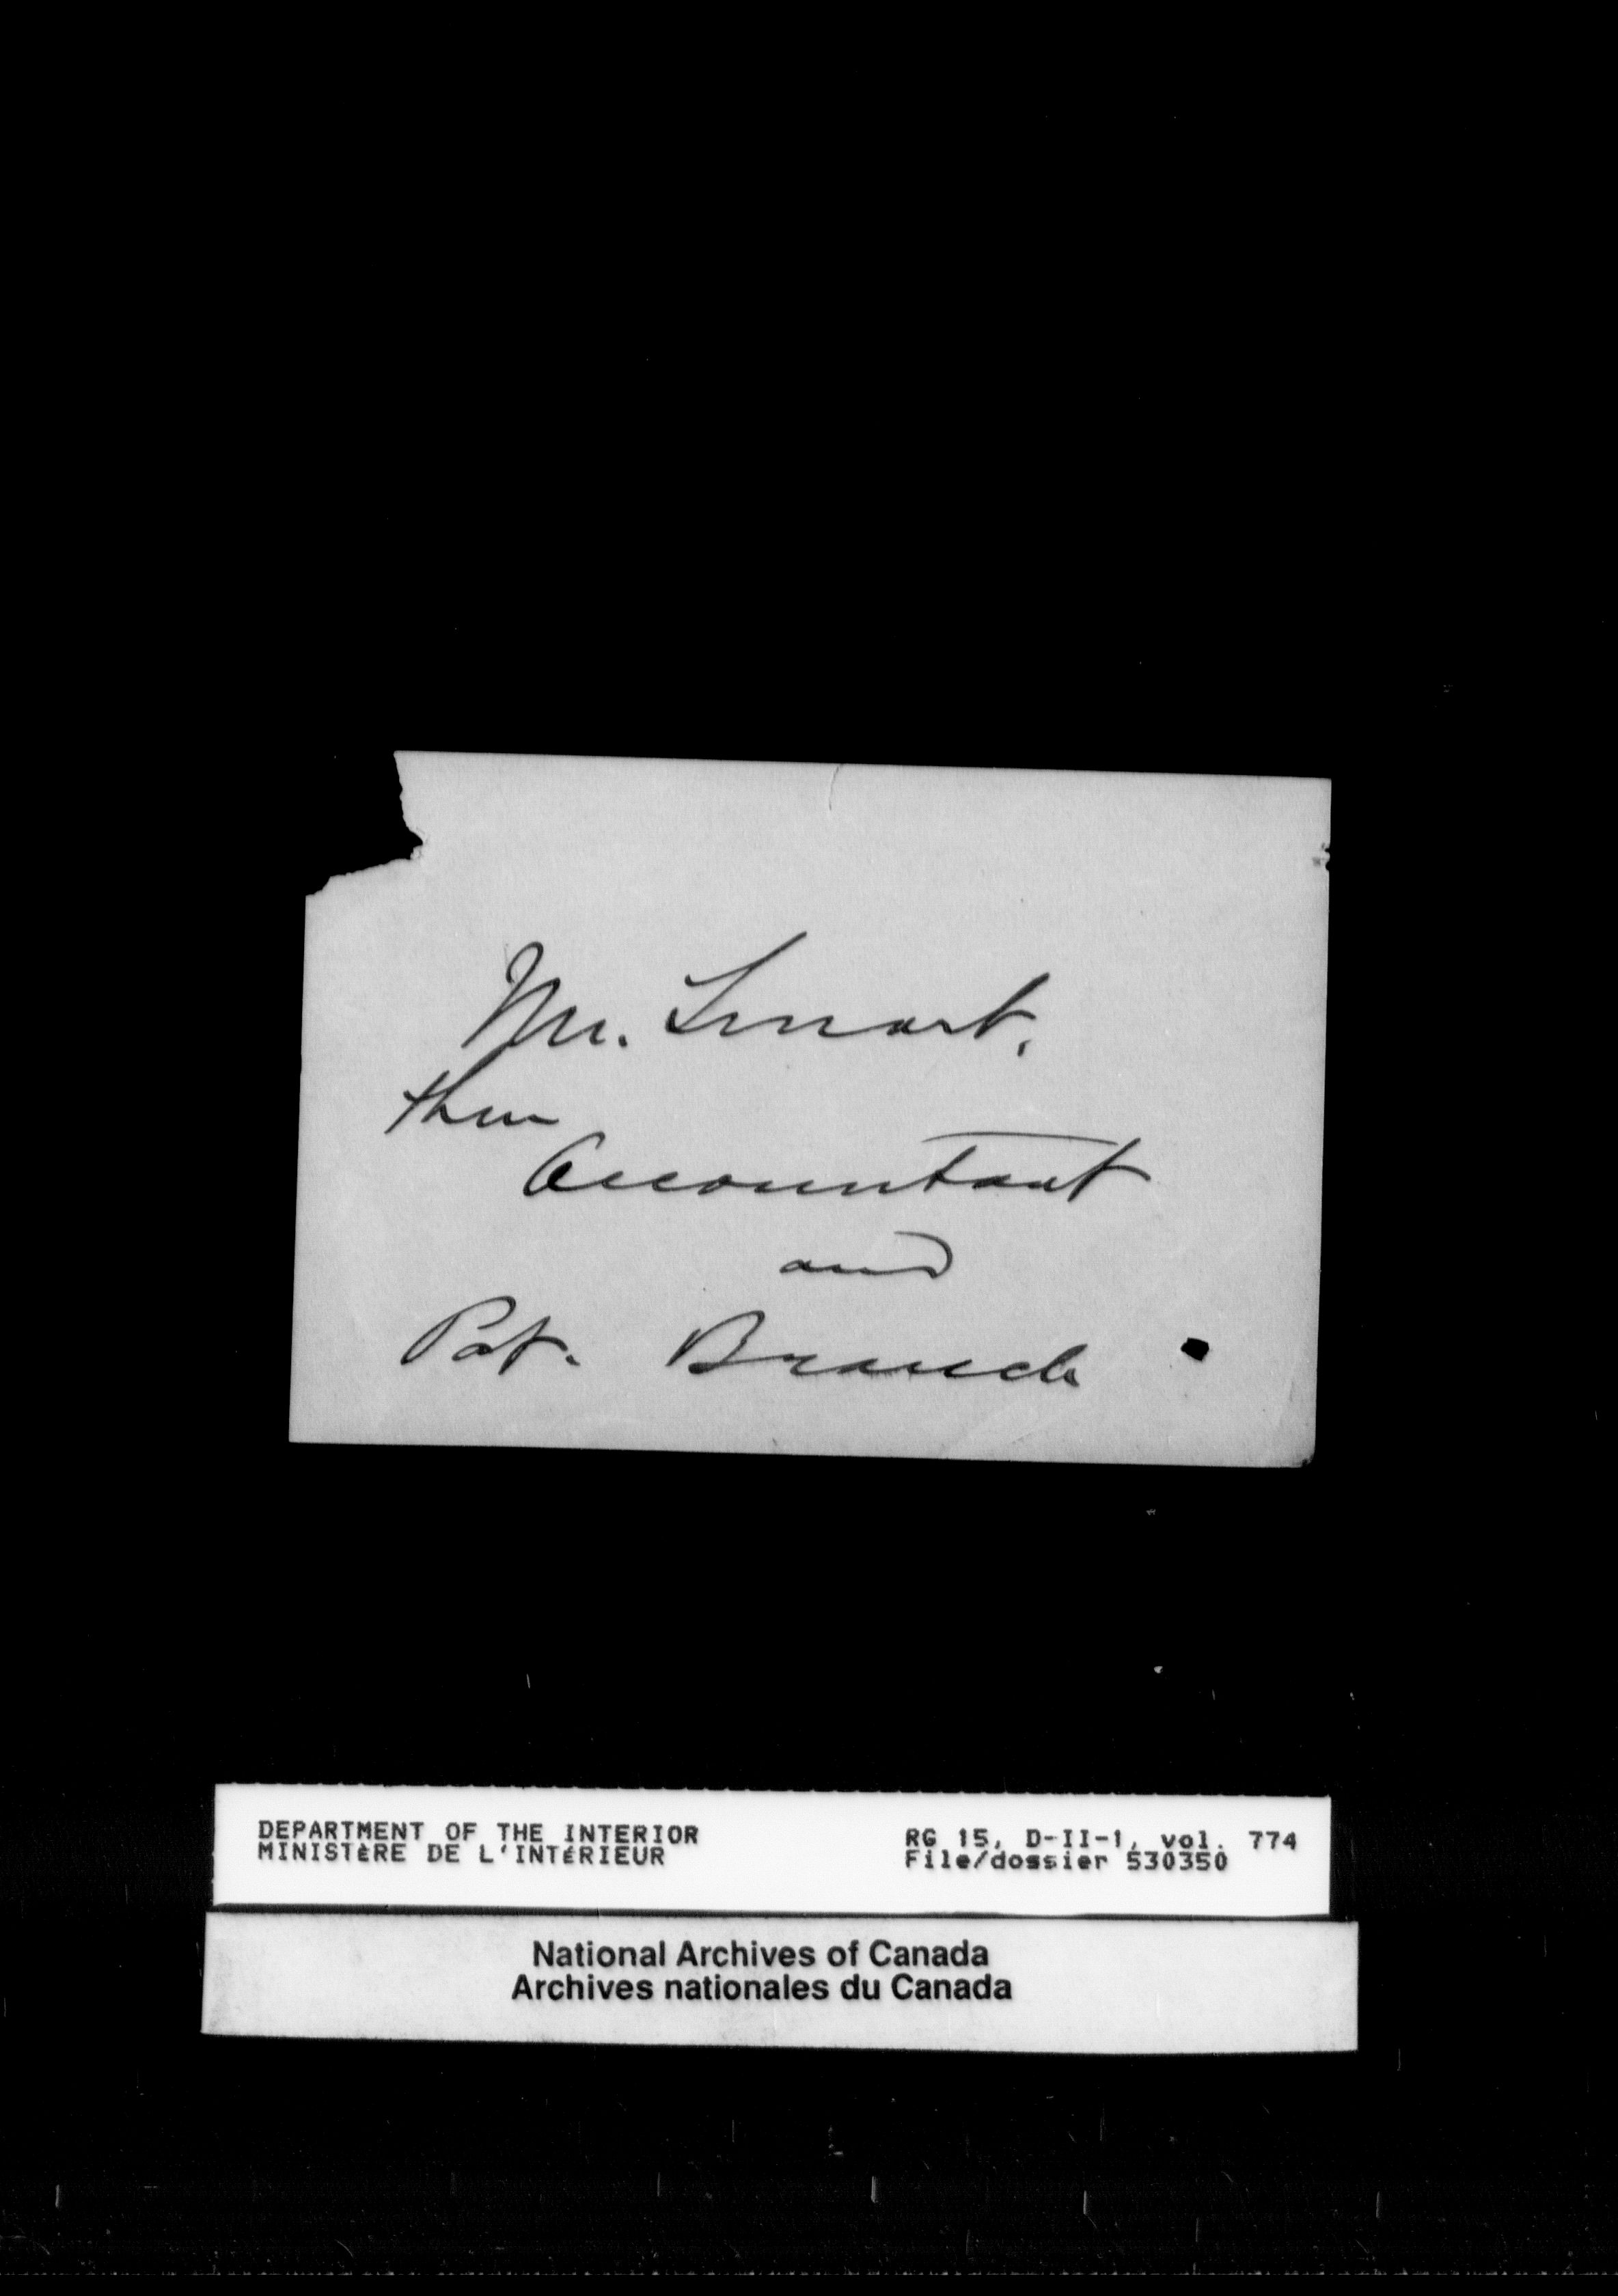 Mr. Smart.
then
Accountant
and
Pat. Branch
DEPARTMENT OF THE INTERIOR
MINISTÈRE DE L'INTÉRIEUR
RG 15, D-II-1, vol. 774
File/dossier 530350
National Archives of Canada
Archives nationales du Canada